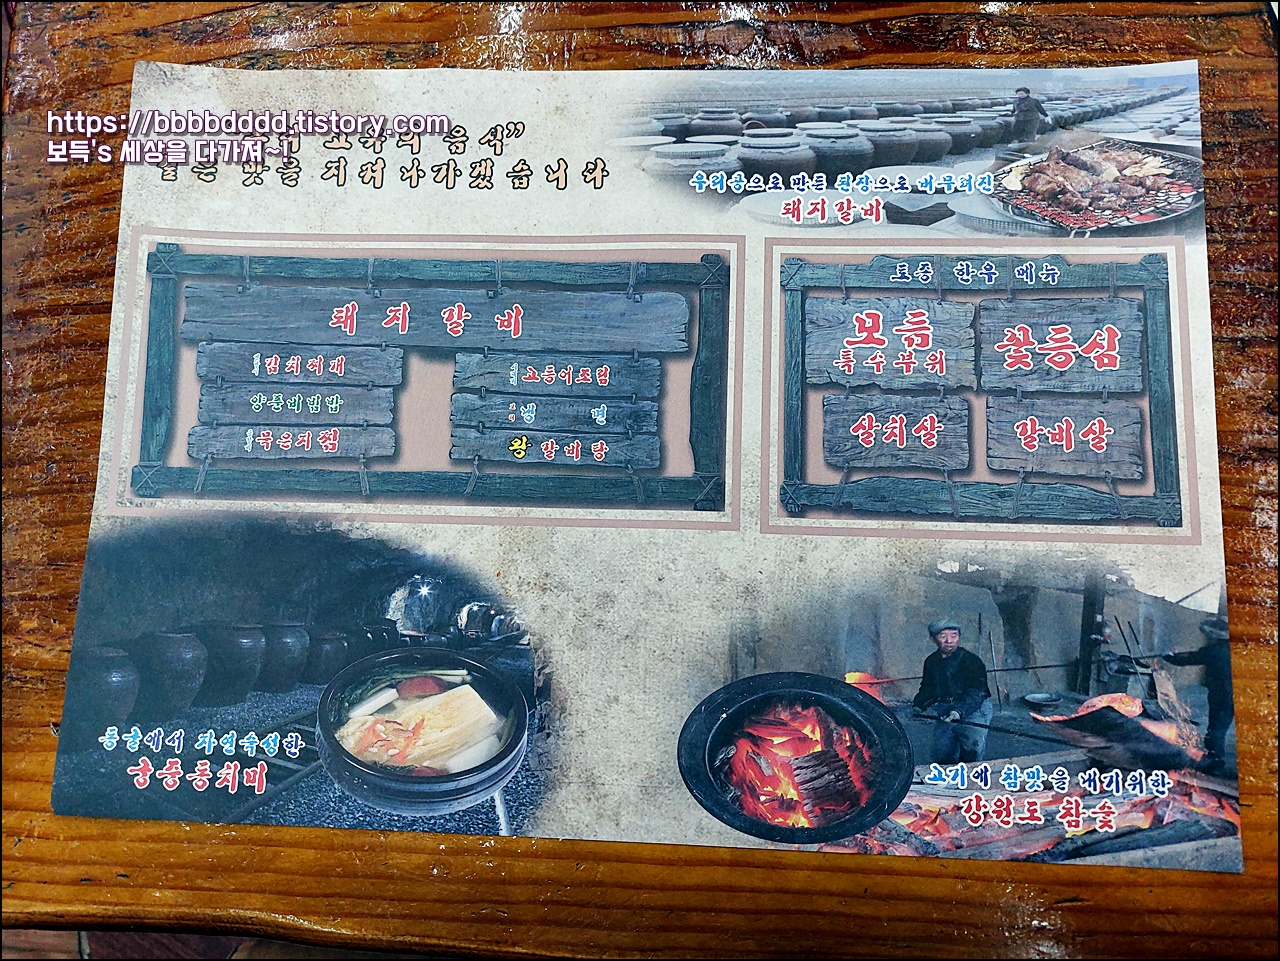 https://bbbbdddd.tistory.com
보득's 세상을 다가져~!
고유의 음식”
맛을 지켜나가겠습니다
우리콩으로 만든 된장으로 버무려진
돼지갈비
돼지갈비
김치찌개
양푼비빔밥
묵은지찜
고등어조림
냉면
왕갈비탕
토종 한우 메뉴
모듬
특수부위
꽃등심
살치살
갈비살
동굴에서 자연숙성한
궁중동치미
고기에 참맛을 내기위한
강원도 참숯